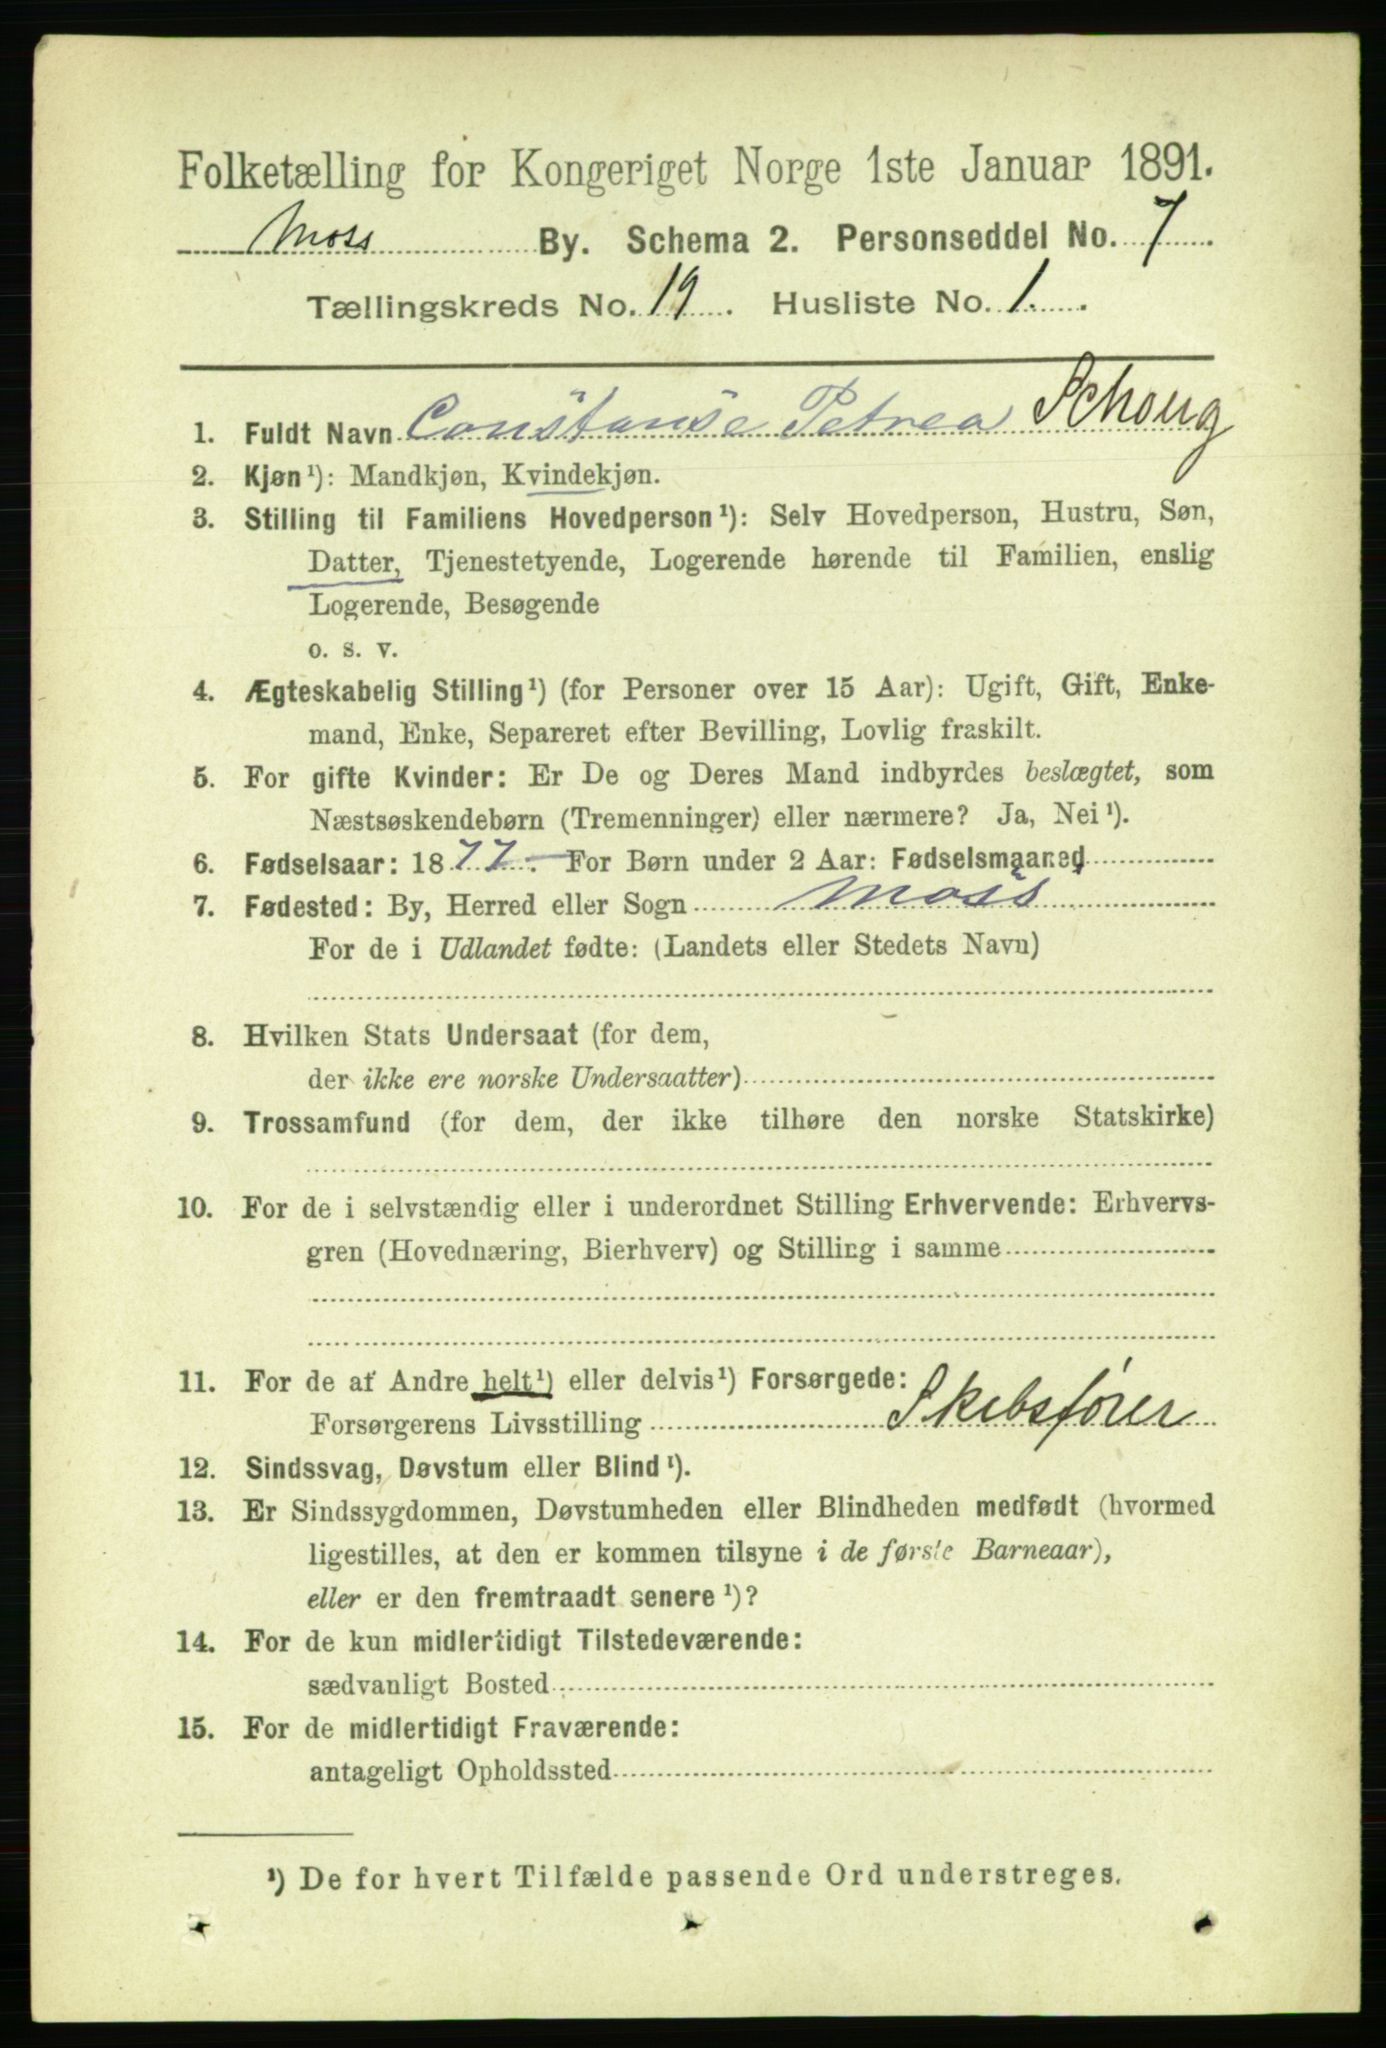 Folketælling for Kongeriget Norge 1ste Januar 1891.
Moss By. Schema 2. Personseddel No. 7
Tællingskreds No. 19. Husliste No. 1.
1. Fuldt Navn Constanse Petrea Schoug
2. Kjøn¹): Mandkjøn, Kvindekjøn.
3. Stilling til Familiens Hovedperson¹): Selv Hovedperson, Hustru, Søn,
Datter, Tjenestetyende, Logerende hørende til Familien, enslig
Logerende, Besøgende
o. s. v.
4. Ægteskabelig Stilling¹) (for Personer over 15 Aar): Ugift, Gift, Enke-
mand, Enke, Separeret efter Bevilling, Lovlig fraskilt.
5. For gifte Kvinder: Er De og Deres Mand indbyrdes beslægtet, som
Næstsøskendebørn (Tremenninger) eller nærmere? Ja, Nei¹).
6. Fødselsaar: 1877. For Børn under 2 Aar: Fødselsmaaned
7. Fødested: By, Herred eller Sogn Moss
For de i Udlandet fødte: (Landets eller Stedets Navn)
8. Hvilken Stats Undersaat (for dem,
der ikke ere norske Undersaatter)
9. Trossamfund (for dem, der ikke tilhøre den norske Statskirke)
10. For de i selvstændig eller i underordnet Stilling Erhvervende: Erhvervs-
gren (Hovednæring, Bierhverv) og Stilling i samme
11. For de af Andre helt¹) eller delvis¹) Forsørgede:
Forsørgerens Livsstilling Skibsfører
12. Sindssvag, Døvstum eller Blind¹).
13. Er Sindssygdommen, Døvstumheden eller Blindheden medfødt (hvormed
ligestilles, at den er kommen tilsyne i de første Barneaar),
eller er den fremtraadt senere¹)?
14. For de kun midlertidigt Tilstedeværende:
sædvanligt Bosted
15. For de midlertidigt Fraværende:
antageligt Opholdssted
¹) De for hvert Tilfælde passende Ord understreges.